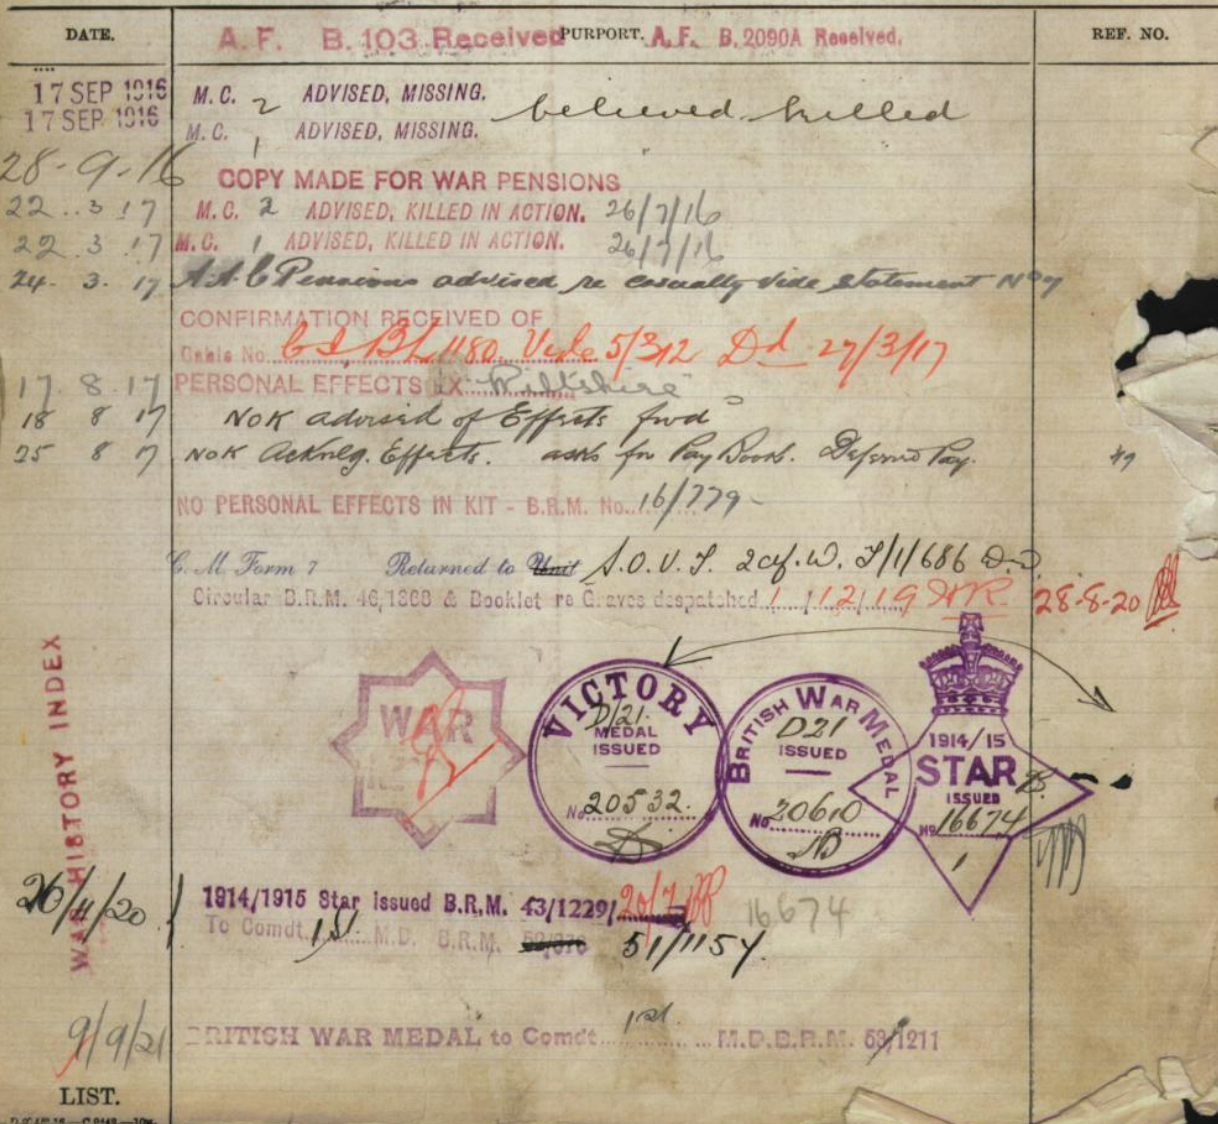 DATE.
A. F. B. 103 Received PURPORT. A. F. B. 2090A Received.
REF. NO.
17 SEP 1916 M.C. 2 ADVISED, MISSING. believed killed
17 SEP 1916 M.C. 1 ADVISED, MISSING.
28-9-16 COPY MADE FOR WAR PENSIONS
22..3 17 M.C. 2 ADVISED, KILLED IN ACTION. 26/7/16
22.3.17 M.C. 1 ADVISED, KILLED IN ACTION. 26/7/16
24. 3. 17 Pensions advised re casualty vide statement No 7
CONFIRMATION RECEIVED OF
Cable No. BL 1180 Vide 5/312 Dd 27/3/17
17. 8. 17 PERSONAL EFFECTS EX Wiltshire
18 8 17 NOK advised of Effects fwd
25 8 17 NOK Acknlg. Effects. asks for Pay Book. Deferred Pay. 49
NO PERSONAL EFFECTS IN KIT - B.R.M. No. 16/779-
C. M. Form 7 Returned to Unit
Circular B.R.M. 46,1388 & Booklet re Graves despatched 1/12/19 28-8-20
WAR HISTORY INDEX
WAR
VICTORY
D/21.
MEDAL
ISSUED
No. 20532.
BRITISH WAR MEDAL
D21
ISSUED
No 20610
1914/15
STAR
ISSUED
No 16674
1
26/4/20 1914/1915 Star issued B.R.M. 43/1229/ 20/7 16674
To Comdt. 1st M.D. B.R.M. 51/1154.
9/9/21 BRITISH WAR MEDAL to Comdt 1st M.D.B.R.M. 53/1211
LIST.